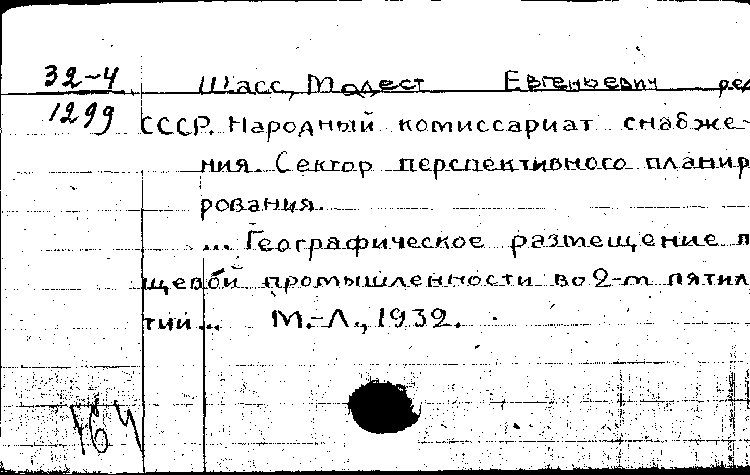 32-4 Шасс, Модест Евгеньевич ред
1299 СССР. Народный комиссариат снабже-
ния. Сектор перспективного планир
рования.
... Географическое размещение п
щевой промышленности во 2-т пятил
тии... М.-Л., 1932.
164